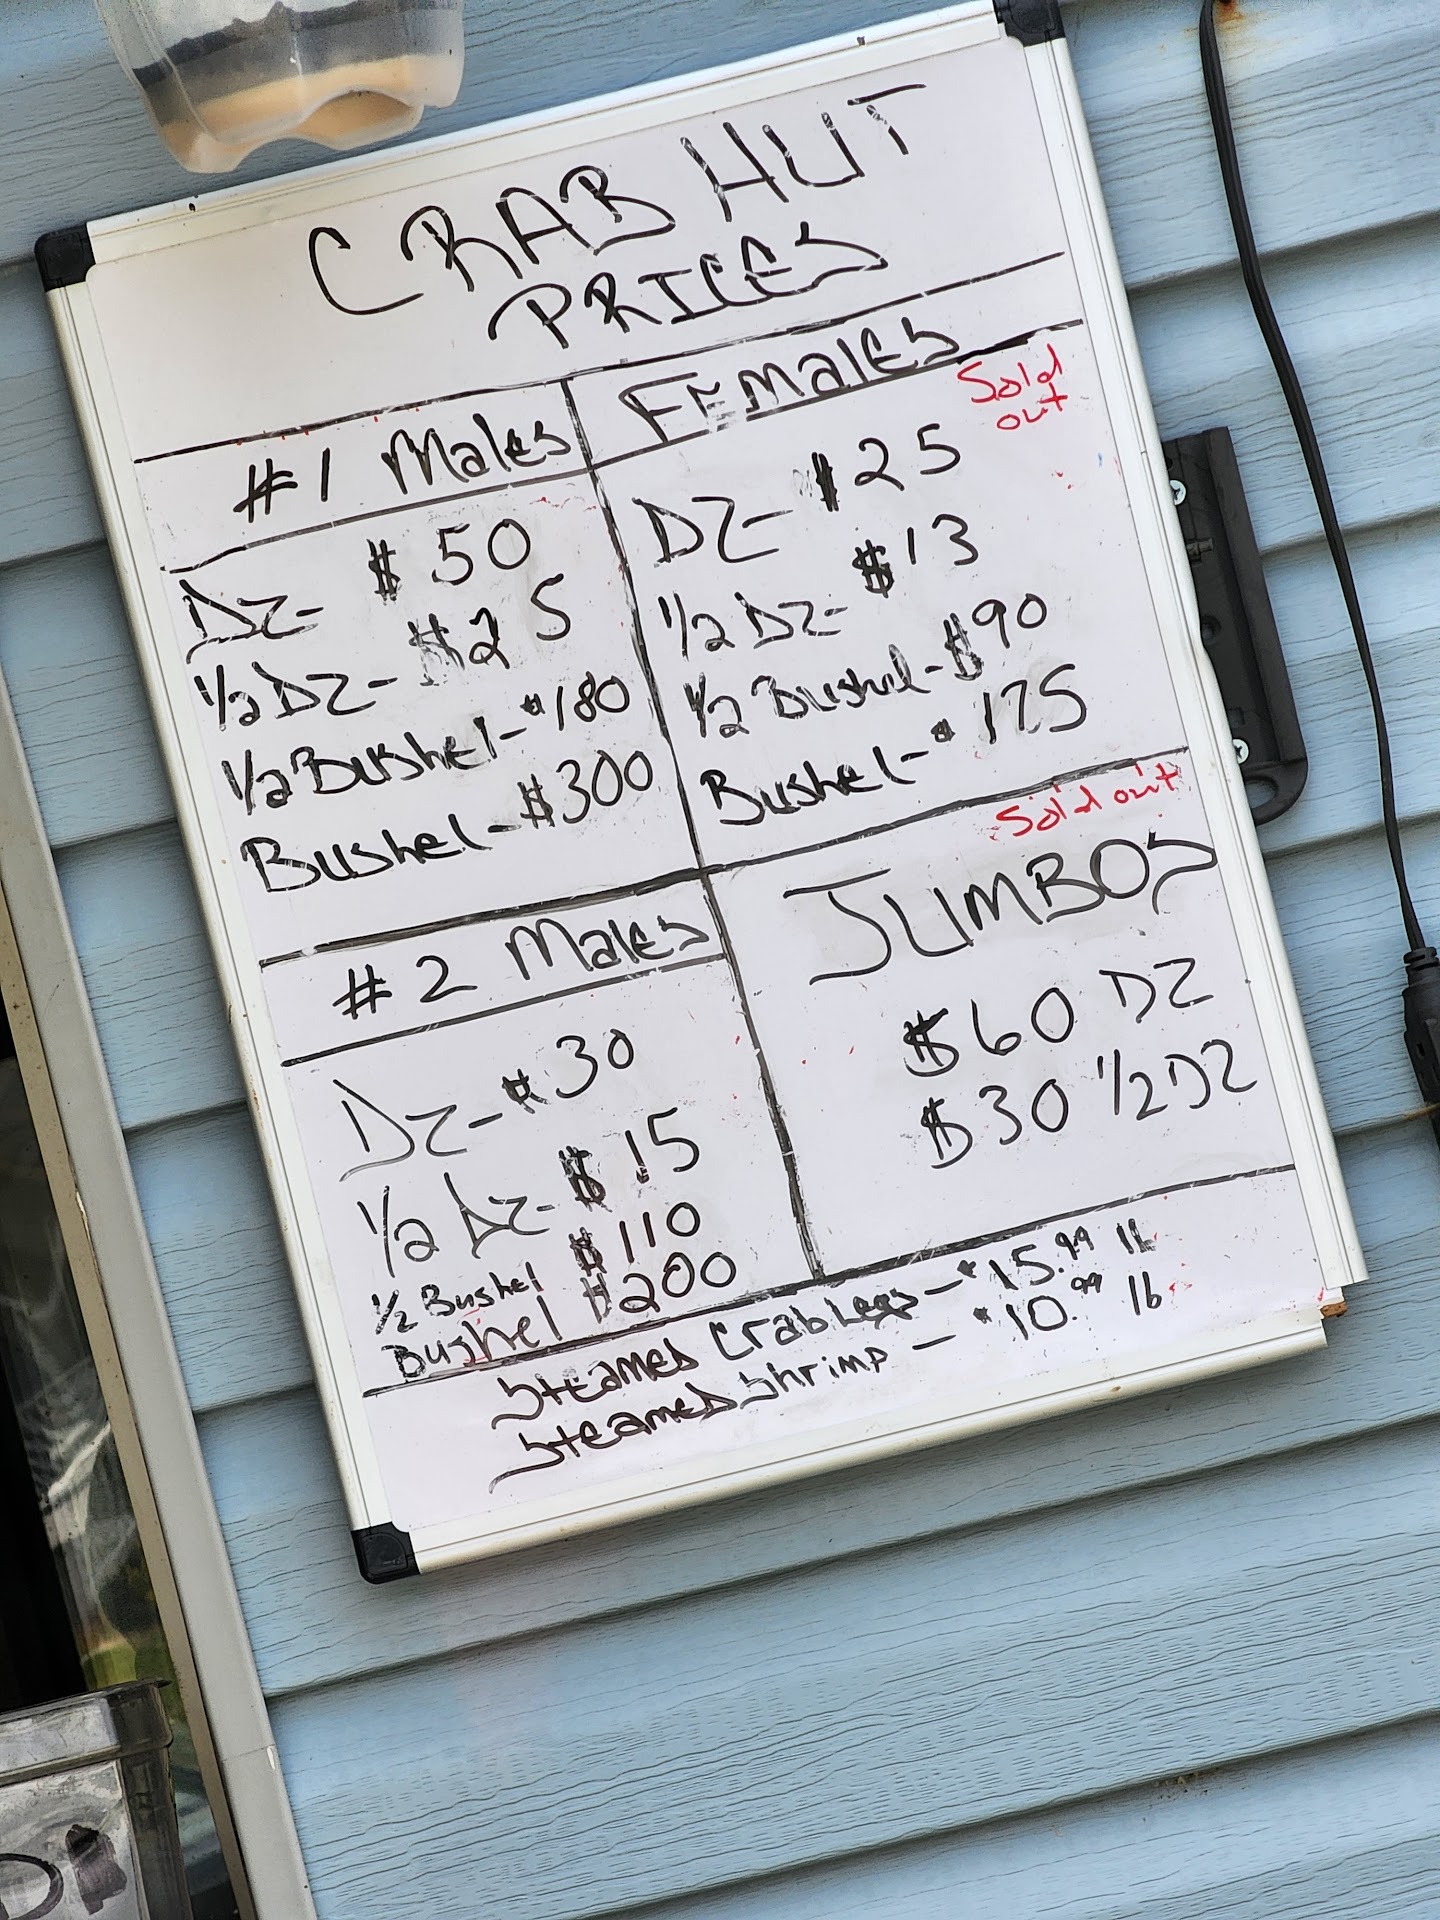 CRAB HUT
PRICES
#1 Males
DZ- $50
1/2 DZ- $25
1/2 Bushel- $180
Bushel- $300
Females
Sold
out
DZ- $25
1/2 DZ- $13
1/2 Bushel- $90
Bushel- $175
#2 Males
DZ- $30
1/2 DZ- $15
1/2 Bushel $110
Bushel $200
Sold out
JUMBOS
$60 DZ
$30 1/2 DZ
Steamed Crab Legs- $15.99 lb
Steamed Shrimp - $10.99 lb